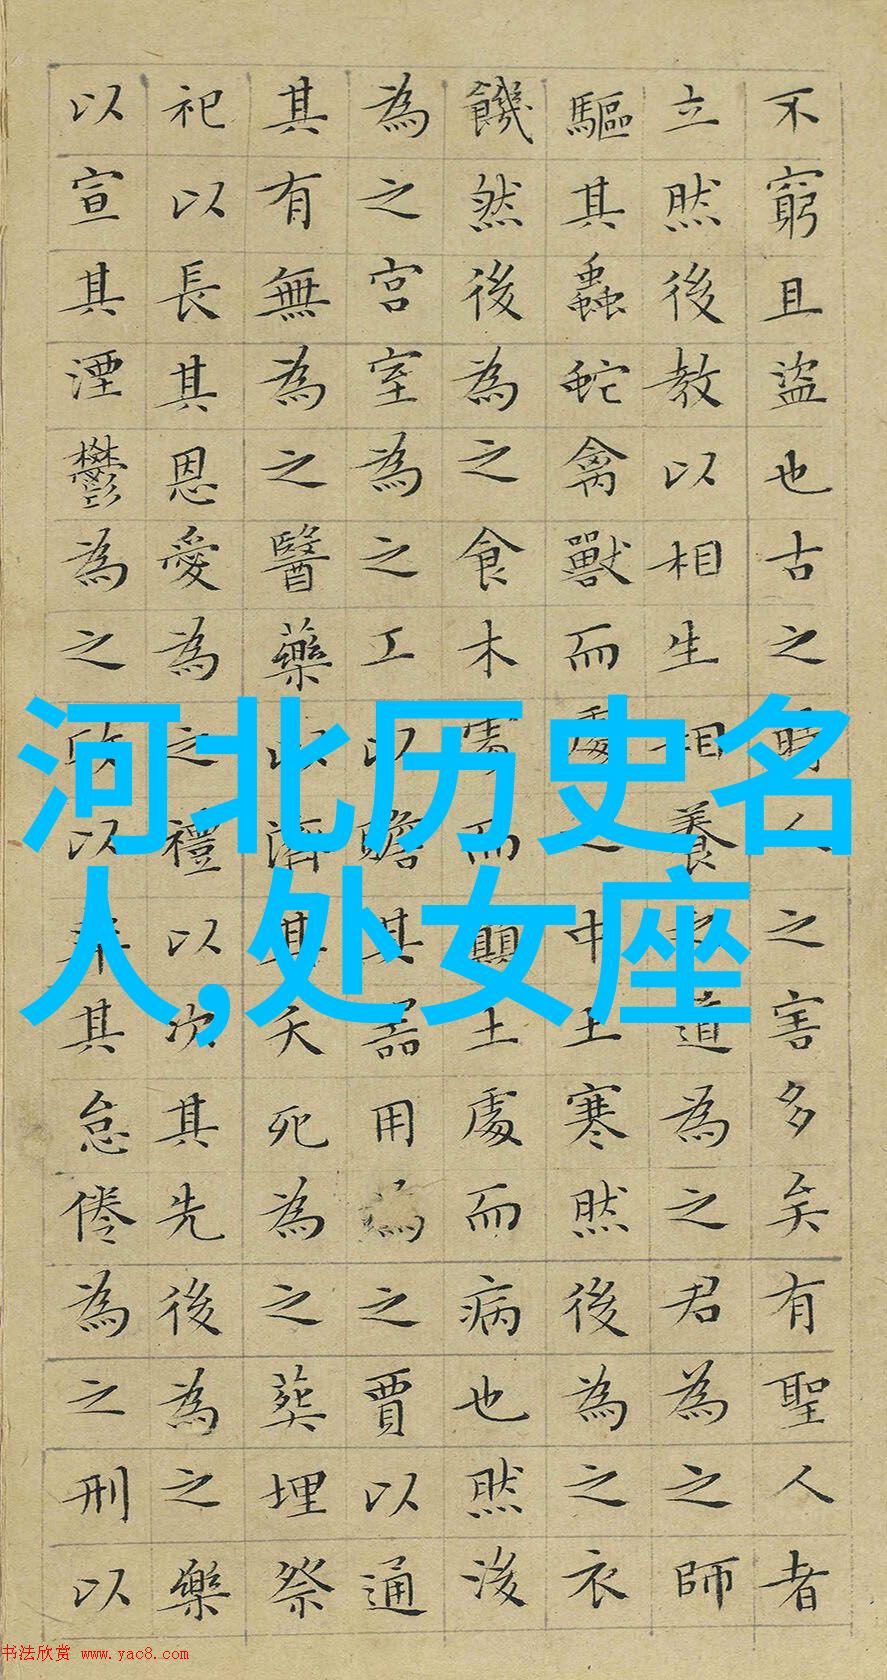 不窮且盜也古之時人之害多矣有聖人者
立然後教以相生相養之道為之君為之師
驅其蟲蛇禽獸而處之中土寒然後為之衣
饑然後為之食木處而顛土處而病也然後
為之宮室為之工以贍其器用為之賈以通
其有無為之醫藥以濟其夭死為之葬埋祭
祀以長其恩愛為之禮以次其先後為之樂
以宣其湮鬱為之政以率其怠倦為之刑以
河北历史名
人,处女座
书法欣赏 www.yac8.com